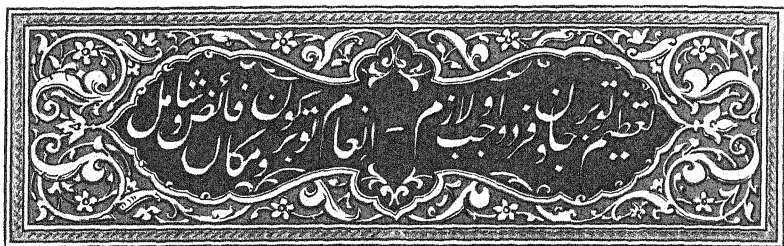 تعظیم تو بر جان و خرد واجب و لازم - انعام تو بر کون و مکان فائض و شامل